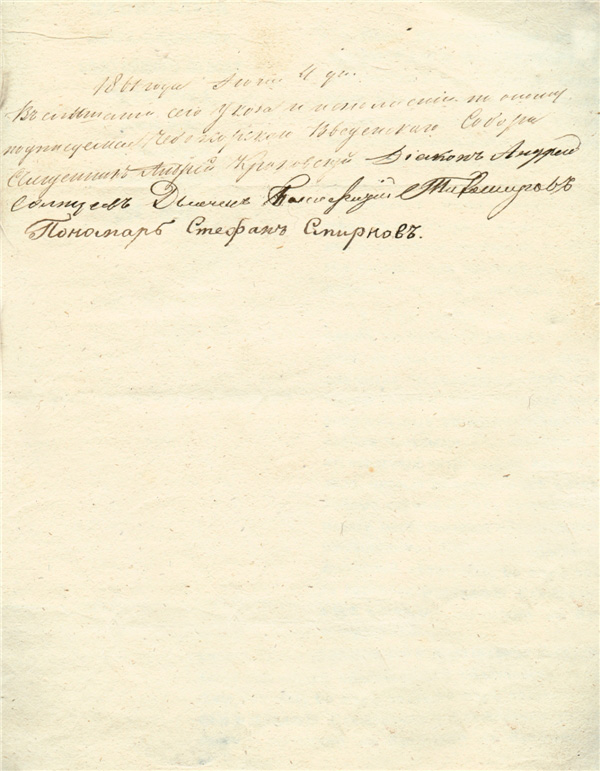 1861 года Июня 4 дн.
Въ слышаніи сего Указа и исполненіи по оному
подписуемся Чебоксарскаго Введенскаго Собора
Священникъ Андрей Краковскій Діаконъ Андрей
Солнцевъ Дьячекъ
Пономарь Стефанъ Смирновъ.